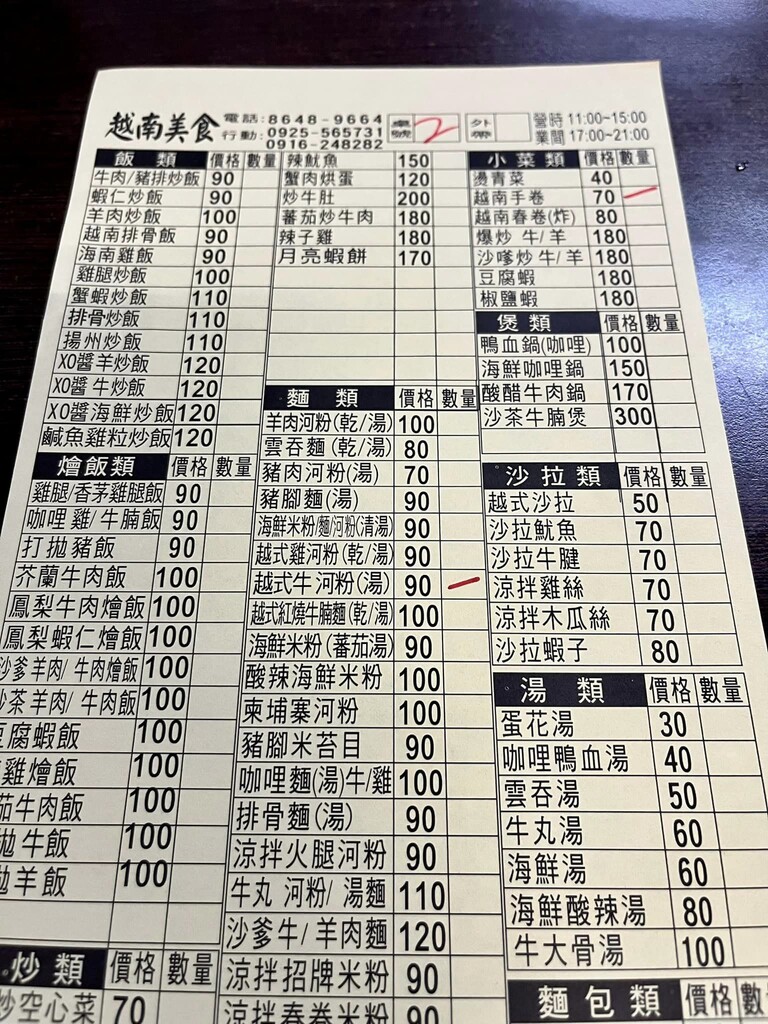 越南美食 電話:8648-9664 桌號 2 外帶 營時 11:00~15:00
行動:0925-565731 業間 17:00~21:00
0916-248282
飯類 價格 數量
牛肉/豬排炒飯 90
蝦仁炒飯 90
羊肉炒飯 100
越南排骨飯 90
海南雞飯 90
雞腿炒飯 100
蟹蝦炒飯 110
排骨炒飯 110
揚州炒飯 110
XO醬羊炒飯 120
XO醬牛炒飯 120
XO醬海鮮炒飯 120
鹹魚雞粒炒飯 120
燴飯類 價格 數量
雞腿/香茅雞腿飯 90
咖哩雞/牛腩飯 90
打拋豬飯 90
芥蘭牛肉飯 100
鳳梨牛肉燴飯 100
鳳梨蝦仁燴飯 100
沙爹羊肉/牛肉燴飯 100
沙茶羊肉/牛肉飯 100
豆腐蝦飯 100
雞燴飯 100
茄牛肉飯 100
拋牛飯 100
拋羊飯 100
炒類 價格 數量
炒空心菜 70
辣魷魚 150
蟹肉烘蛋 120
炒牛肚 200
蕃茄炒牛肉 180
辣子雞 180
月亮蝦餅 170
麵類 價格 數量
羊肉河粉(乾/湯) 100
雲吞麵(乾/湯) 80
豬肉河粉(湯) 70
豬腳麵(湯) 90
海鮮米粉/麵/河粉(清湯) 90
越式雞河粉(乾/湯) 90
越式牛河粉(湯) 90
越式紅燒牛腩麵(乾/湯) 100
海鮮米粉(蕃茄湯) 90
酸辣海鮮米粉 100
柬埔寨河粉 100
豬腳米苔目 90
咖哩麵(湯)牛/雞 100
排骨麵(湯) 90
涼拌火腿河粉 90
牛丸 河粉/湯麵 110
沙爹牛/羊肉麵 120
涼拌招牌米粉 90
涼拌春卷米粉 90
小菜類 價格 數量
燙青菜 40
越南手卷 70
越南春卷(炸) 80
爆炒 牛/羊 180
沙嗲炒牛/羊 180
豆腐蝦 180
椒鹽蝦 180
煲類 價格 數量
鴨血鍋(咖哩) 100
海鮮咖哩鍋 150
酸醋牛肉鍋 170
沙茶牛腩煲 300
沙拉類 價格 數量
越式沙拉 50
沙拉魷魚 70
沙拉牛腱 70
涼拌雞絲 70
涼拌木瓜絲 70
沙拉蝦子 80
湯類 價格 數量
蛋花湯 30
咖哩鴨血湯 40
雲吞湯 50
牛丸湯 60
海鮮湯 60
海鮮酸辣湯 80
牛大骨湯 100
麵包類 價格 數